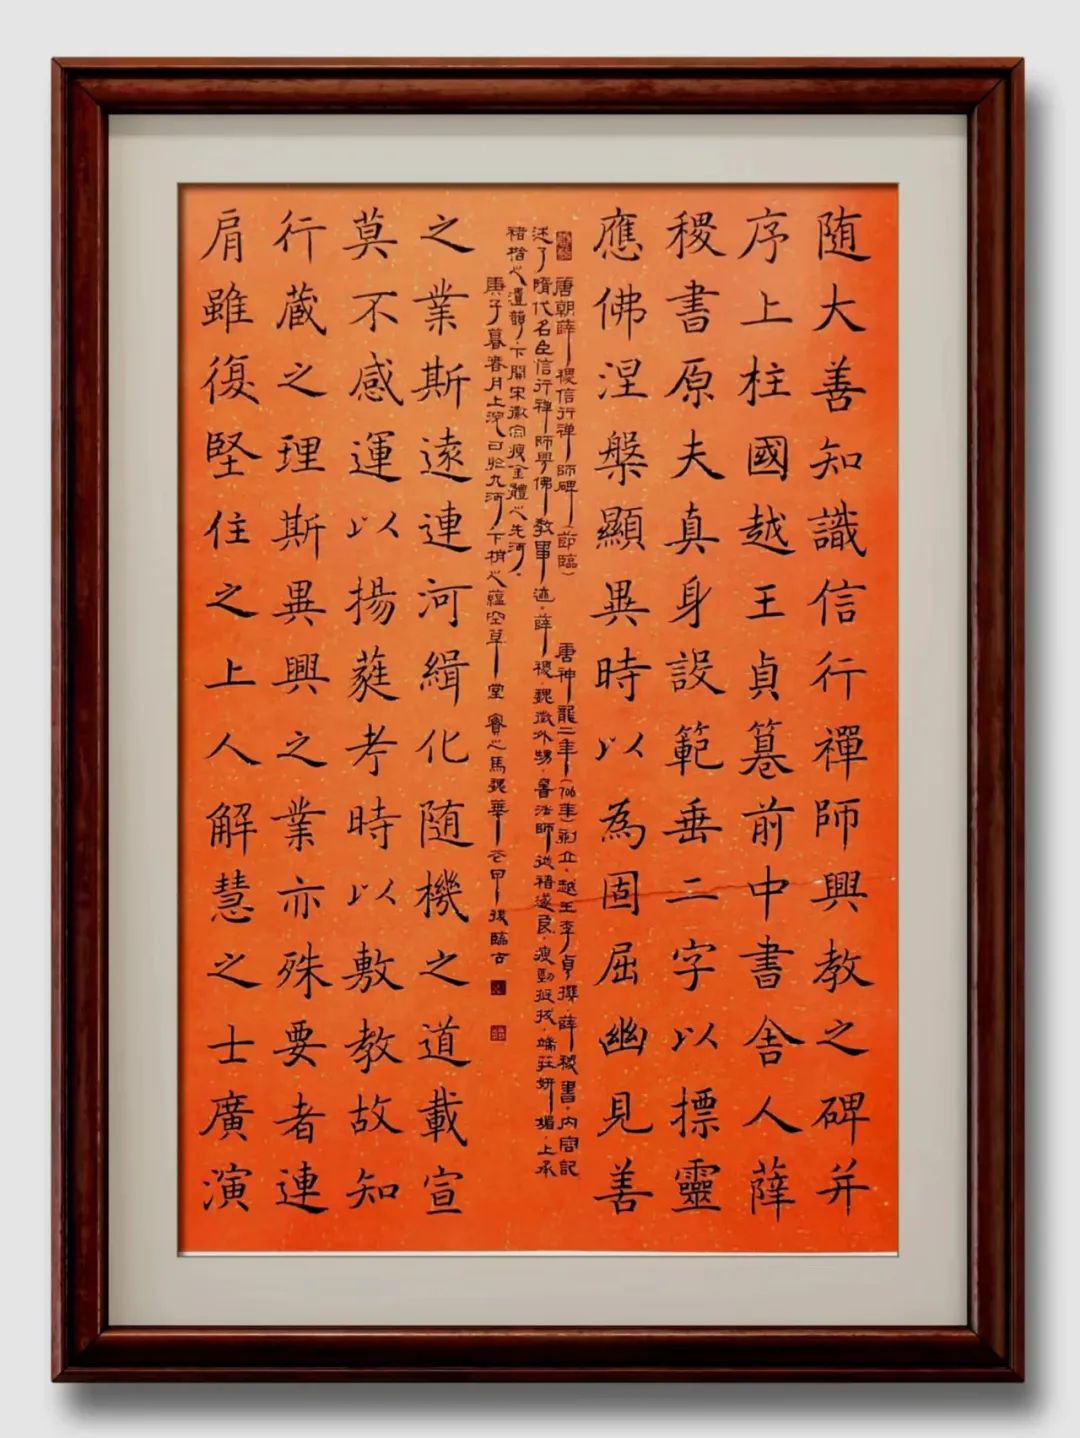 随大善知識信行禪師興教之碑并
序上柱國越王貞篹前中書舍人薛
稷書原夫真身設範垂二字以摽靈
應佛涅槃顯異時以為固屈幽見善
唐朝薛稷信行禅師碑（節臨）　唐神龍二年（706年）刻立，越王李貞撰，薛稷書，内容記
述了隋代名臣信行禅師學佛教事迹，薛稷，魏徵外甥，書法師從褚遂良，瘦勁挺拔，端莊妍媚，上承
褚楷之遺韻，下開宋徽宗瘦金體之先河。
庚子暮春月上浣日於九河下梢之蘊空草堂　馬魏華花甲後臨古
之業斯遠連河緝化随機之道載宣
莫不感運以揚蕤考時以敷教故知
行蔵之理斯異興之業亦殊要者連
肩雖復堅住之上人解慧之士廣演